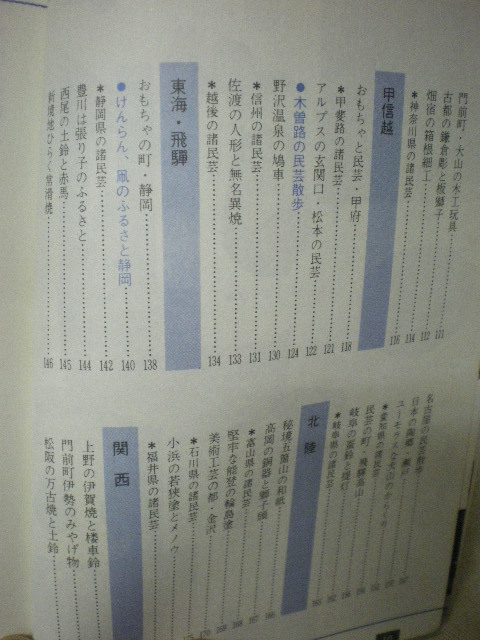 門前町・大山の木工玩具…111
古都の鎌倉彫と板獅子…112
畑宿の箱根細工…114
*神奈川県の諸民芸…116
甲信越
おもちゃと民芸・甲府…118
*甲斐路の諸民芸…121
アルプスの玄関口・松本の民芸…122
●木曽路の民芸散歩…124
野沢温泉の鳩車…130
*信州の諸民芸…131
佐渡の人形と無名異焼…133
*越後の諸民芸…134
東海・飛騨
おもちゃの町・静岡…138
●けんらん、凧のふるさと静岡…140
*静岡県の諸民芸…142
豊川は張り子のふるさと…144
西尾の土鈴と赤馬…145
新境地ひらく常滑焼…146
名古屋の民芸散歩
ユーモラスな犬山のからくり
*愛知県の諸民芸
民芸の町・飛騨高山
岐阜の英鈴と提灯
*岐阜県の諸民芸
北陸
秘境五箇山の和紙
高岡の銅器と獅子頭
*富山県の諸民芸
堅牢な能登の輪島塗
美術工芸の都・金沢
*石川県の諸民芸
小浜の若狭塗とメノウ
*福井県の諸民芸
関西
上野の伊賀焼と楼車鈴
門前町伊勢のみやげ物
松阪の万古焼と土鈴